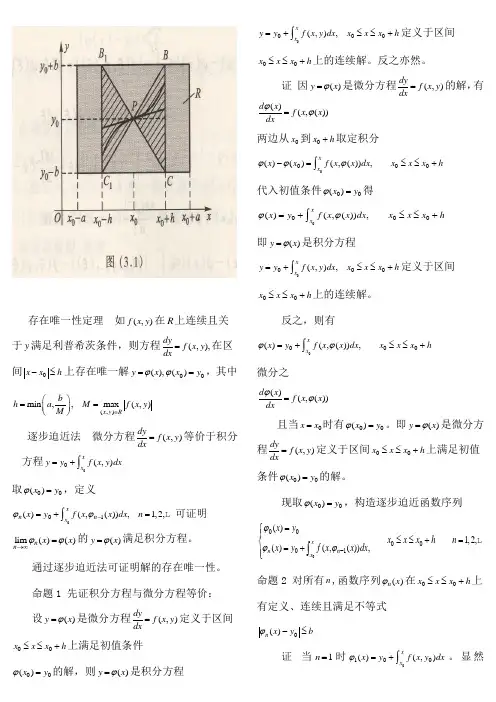 y
y₀+b
B₁
B
R
y₀
P
y₀-b
C₁
C
O x₀-a x₀-h x₀ x₀+h x₀+a x
图 (3.1)
存在唯一性定理 如 f(x,y) 在 R 上连续且关
于 y 满足利普希茨条件，则方程 dy/dx = f(x,y), 在区
间 |x-x₀| ≤ h 上存在唯一解 y=φ(x), φ(x₀)=y₀，其中
h = min(a, b/M), M = max_{(x,y)∈R} f(x,y)
逐步迫近法 微分方程 dy/dx = f(x,y) 等价于积分
方程 y = y₀ + ∫_{x₀}^{x} f(x,y)dx
取 φ(x₀)=y₀，定义
φₙ(x) = y₀ + ∫_{x₀}^{x} f(x,φₙ₋₁(x))dx, n=1,2,L 可证明
lim_{n→∞} φₙ(x) = φ(x) 的 y=φ(x) 满足积分方程。
通过逐步迫近法可证明解的存在唯一性。
命题 1 先证积分方程与微分方程等价：
设 y=φ(x) 是微分方程 dy/dx = f(x,y) 定义于区间
x₀ ≤ x ≤ x₀+h 上满足初值条件
φ(x₀)=y₀ 的解，则 y=φ(x) 是积分方程
y = y₀ + ∫_{x₀}^{x} f(x,y)dx, x₀ ≤ x ≤ x₀+h 定义于区间
x₀ ≤ x ≤ x₀+h 上的连续解。反之亦然。
证 因 y=φ(x) 是微分方程 dy/dx = f(x,y) 的解,有
dφ(x)/dx = f(x,φ(x))
两边从 x₀ 到 x₀+h 取定积分
φ(x)-φ(x₀) = ∫_{x₀}^{x} f(x,φ(x))dx, x₀ ≤ x ≤ x₀+h
代入初值条件 φ(x₀)=y₀ 得
φ(x) = y₀ + ∫_{x₀}^{x} f(x,φ(x))dx, x₀ ≤ x ≤ x₀+h
即 y=φ(x) 是积分方程
y = y₀ + ∫_{x₀}^{x} f(x,y)dx, x₀ ≤ x ≤ x₀+h 定义于区间
x₀ ≤ x ≤ x₀+h 上的连续解。
反之，则有
φ(x) = y₀ + ∫_{x₀}^{x} f(x,φ(x))dx, x₀ ≤ x ≤ x₀+h
微分之
dφ(x)/dx = f(x,φ(x))
且当 x=x₀ 时有 φ(x₀)=y₀。即 y=φ(x) 是微分方
程 dy/dx = f(x,y) 定义于区间 x₀ ≤ x ≤ x₀+h 上满足初值
条件 φ(x₀)=y₀ 的解。
现取 φ(x₀)=y₀，构造逐步迫近函数序列
{ φ₀(x₀) = y₀
φₙ(x) = y₀ + ∫_{x₀}^{x} f(x,φₙ₋₁(x))dx, x₀ ≤ x ≤ x₀+h n=1,2,L
命题 2 对所有 n,函数序列 φₙ(x) 在 x₀ ≤ x ≤ x₀+h 上
有定义、连续且满足不等式
φₙ(x)-y₀ ≤ b
证 当 n=1 时 φ₁(x) = y₀ + ∫_{x₀}^{x} f(x,y₀)dx 。显然